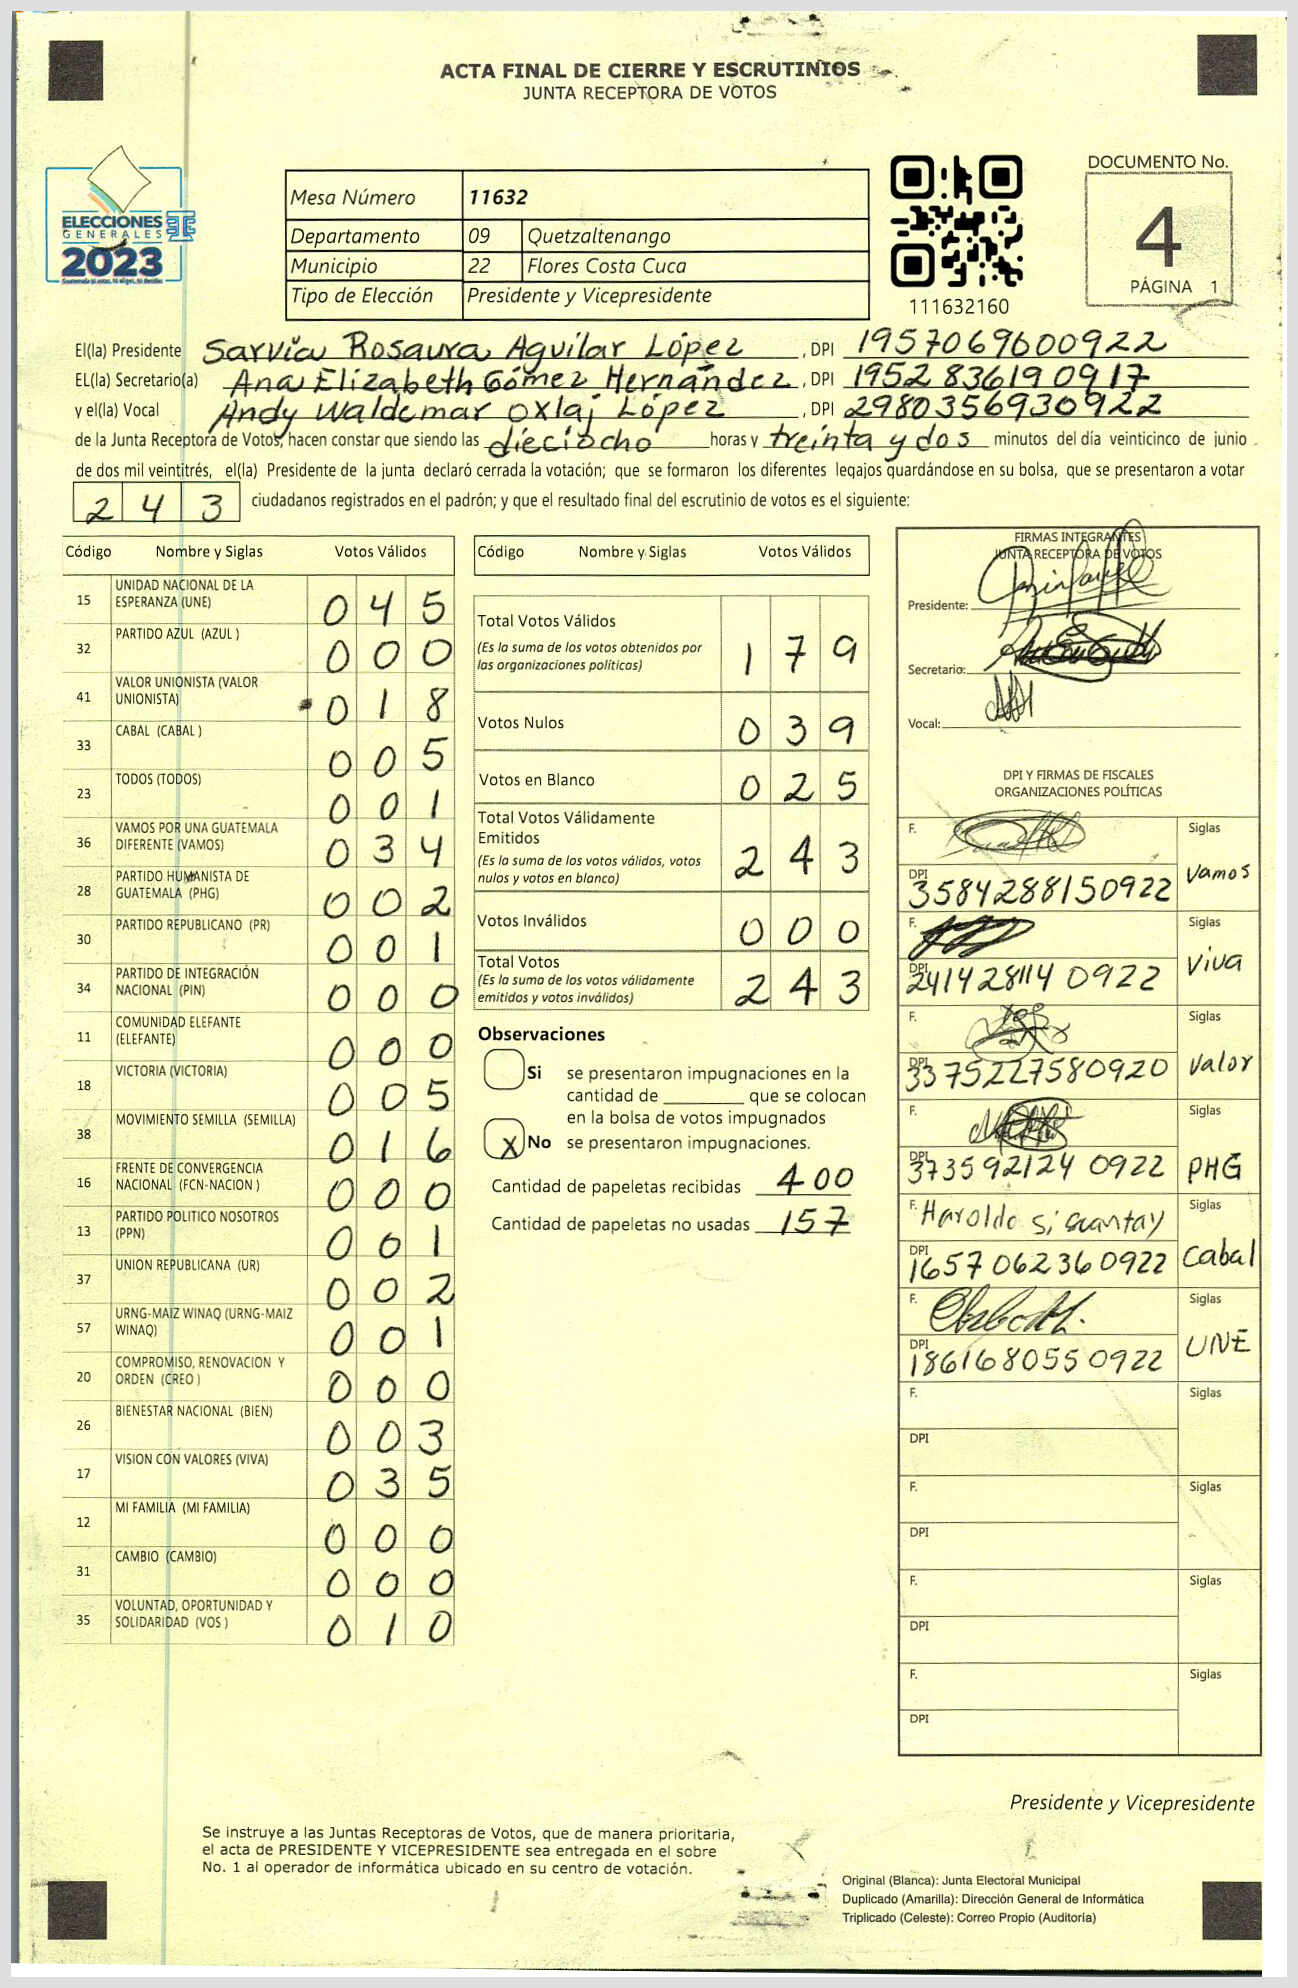 ACTA FINAL DE CIERRE Y ESCRUTINIOS
JUNTA RECEPTORA DE VOTOS
ELECCIONES
GENERALES
2023
Mesa Número 11632
Departamento 09 Quetzaltenango
Municipio 22 Flores Costa Cuca
Tipo de Elección Presidente y Vicepresidente
111632160
DOCUMENTO No.
4
PÁGINA 1
El(la) Presidente Sarvia Rosaura Aguilar López , DPI 1957069600922
EL(la) Secretario(a) Ana Elizabeth Gómez Hernández , DPI 1952836190917
y el(la) Vocal Andy Waldemar Oxlaj López , DPI 2980356930922
de la Junta Receptora de Votos, hacen constar que siendo las dieciocho horas y treinta y dos minutos del día veinticinco de junio
de dos mil veintitrés, el(la) Presidente de la junta declaró cerrada la votación; que se formaron los diferentes legajos quardándose en su bolsa, que se presentaron a votar
243 ciudadanos registrados en el padrón; y que el resultado final del escrutinio de votos es el siguiente:
Código Nombre y Siglas Votos Válidos
15 UNIDAD NACIONAL DE LA ESPERANZA (UNE) 045
32 PARTIDO AZUL (AZUL ) 000
41 VALOR UNIONISTA (VALOR UNIONISTA) 018
33 CABAL (CABAL ) 005
23 TODOS (TODOS) 001
36 VAMOS POR UNA GUATEMALA DIFERENTE (VAMOS) 034
28 PARTIDO HUMANISTA DE GUATEMALA (PHG) 002
30 PARTIDO REPUBLICANO (PR) 001
34 PARTIDO DE INTEGRACIÓN NACIONAL (PIN) 000
11 COMUNIDAD ELEFANTE (ELEFANTE) 000
18 VICTORIA (VICTORIA) 005
38 MOVIMIENTO SEMILLA (SEMILLA) 016
16 FRENTE DE CONVERGENCIA NACIONAL (FCN-NACION ) 000
13 PARTIDO POLITICO NOSOTROS (PPN) 001
37 UNION REPUBLICANA (UR) 002
57 URNG-MAIZ WINAQ (URNG-MAIZ WINAQ) 001
20 COMPROMISO, RENOVACION Y ORDEN (CREO ) 000
26 BIENESTAR NACIONAL (BIEN) 003
17 VISION CON VALORES (VIVA) 035
12 MI FAMILIA (MI FAMILIA) 000
31 CAMBIO (CAMBIO) 000
35 VOLUNTAD, OPORTUNIDAD Y SOLIDARIDAD (VOS ) 010
Código Nombre y Siglas Votos Válidos
Total Votos Válidos 179
(Es la suma de los votos obtenidos por
las organizaciones políticas)
Votos Nulos 039
Votos en Blanco 025
Total Votos Válidamente
Emitidos 243
(Es la suma de los votos válidos, votos
nulos y votos en blanco)
Votos Inválidos 000
Total Votos 243
(Es la suma de los votos válidamente
emitidos y votos inválidos)
Observaciones
Si se presentaron impugnaciones en la
cantidad de ________ que se colocan
en la bolsa de votos impugnados
X No se presentaron impugnaciones.
Cantidad de papeletas recibidas 400
Cantidad de papeletas no usadas 157
FIRMAS INTEGRANTES
JUNTA RECEPTORA DE VOTOS
Presidente:
Secretario:
Vocal:
DPI Y FIRMAS DE FISCALES
ORGANIZACIONES POLÍTICAS
F. Siglas
DPI 3584288150922 Vamos
F. Siglas
DPI 2414281140922 Viva
F. Siglas
DPI 3375227580920 Valor
F. Siglas
DPI 3735921240922 PHG
F. Haroldo Siguantay Siglas
DPI 1657062360922 Cabal
F. Siglas
DPI 1861680550922 UNE
F. Siglas
DPI
F. Siglas
DPI
F. Siglas
DPI
F. Siglas
DPI
Presidente y Vicepresidente
Se instruye a las Juntas Receptoras de Votos, que de manera prioritaria,
el acta de PRESIDENTE Y VICEPRESIDENTE sea entregada en el sobre
No. 1 al operador de informática ubicado en su centro de votación.
Original (Blanca): Junta Electoral Municipal
Duplicado (Amarilla): Dirección General de Informática
Triplicado (Celeste): Correo Propio (Auditoría)